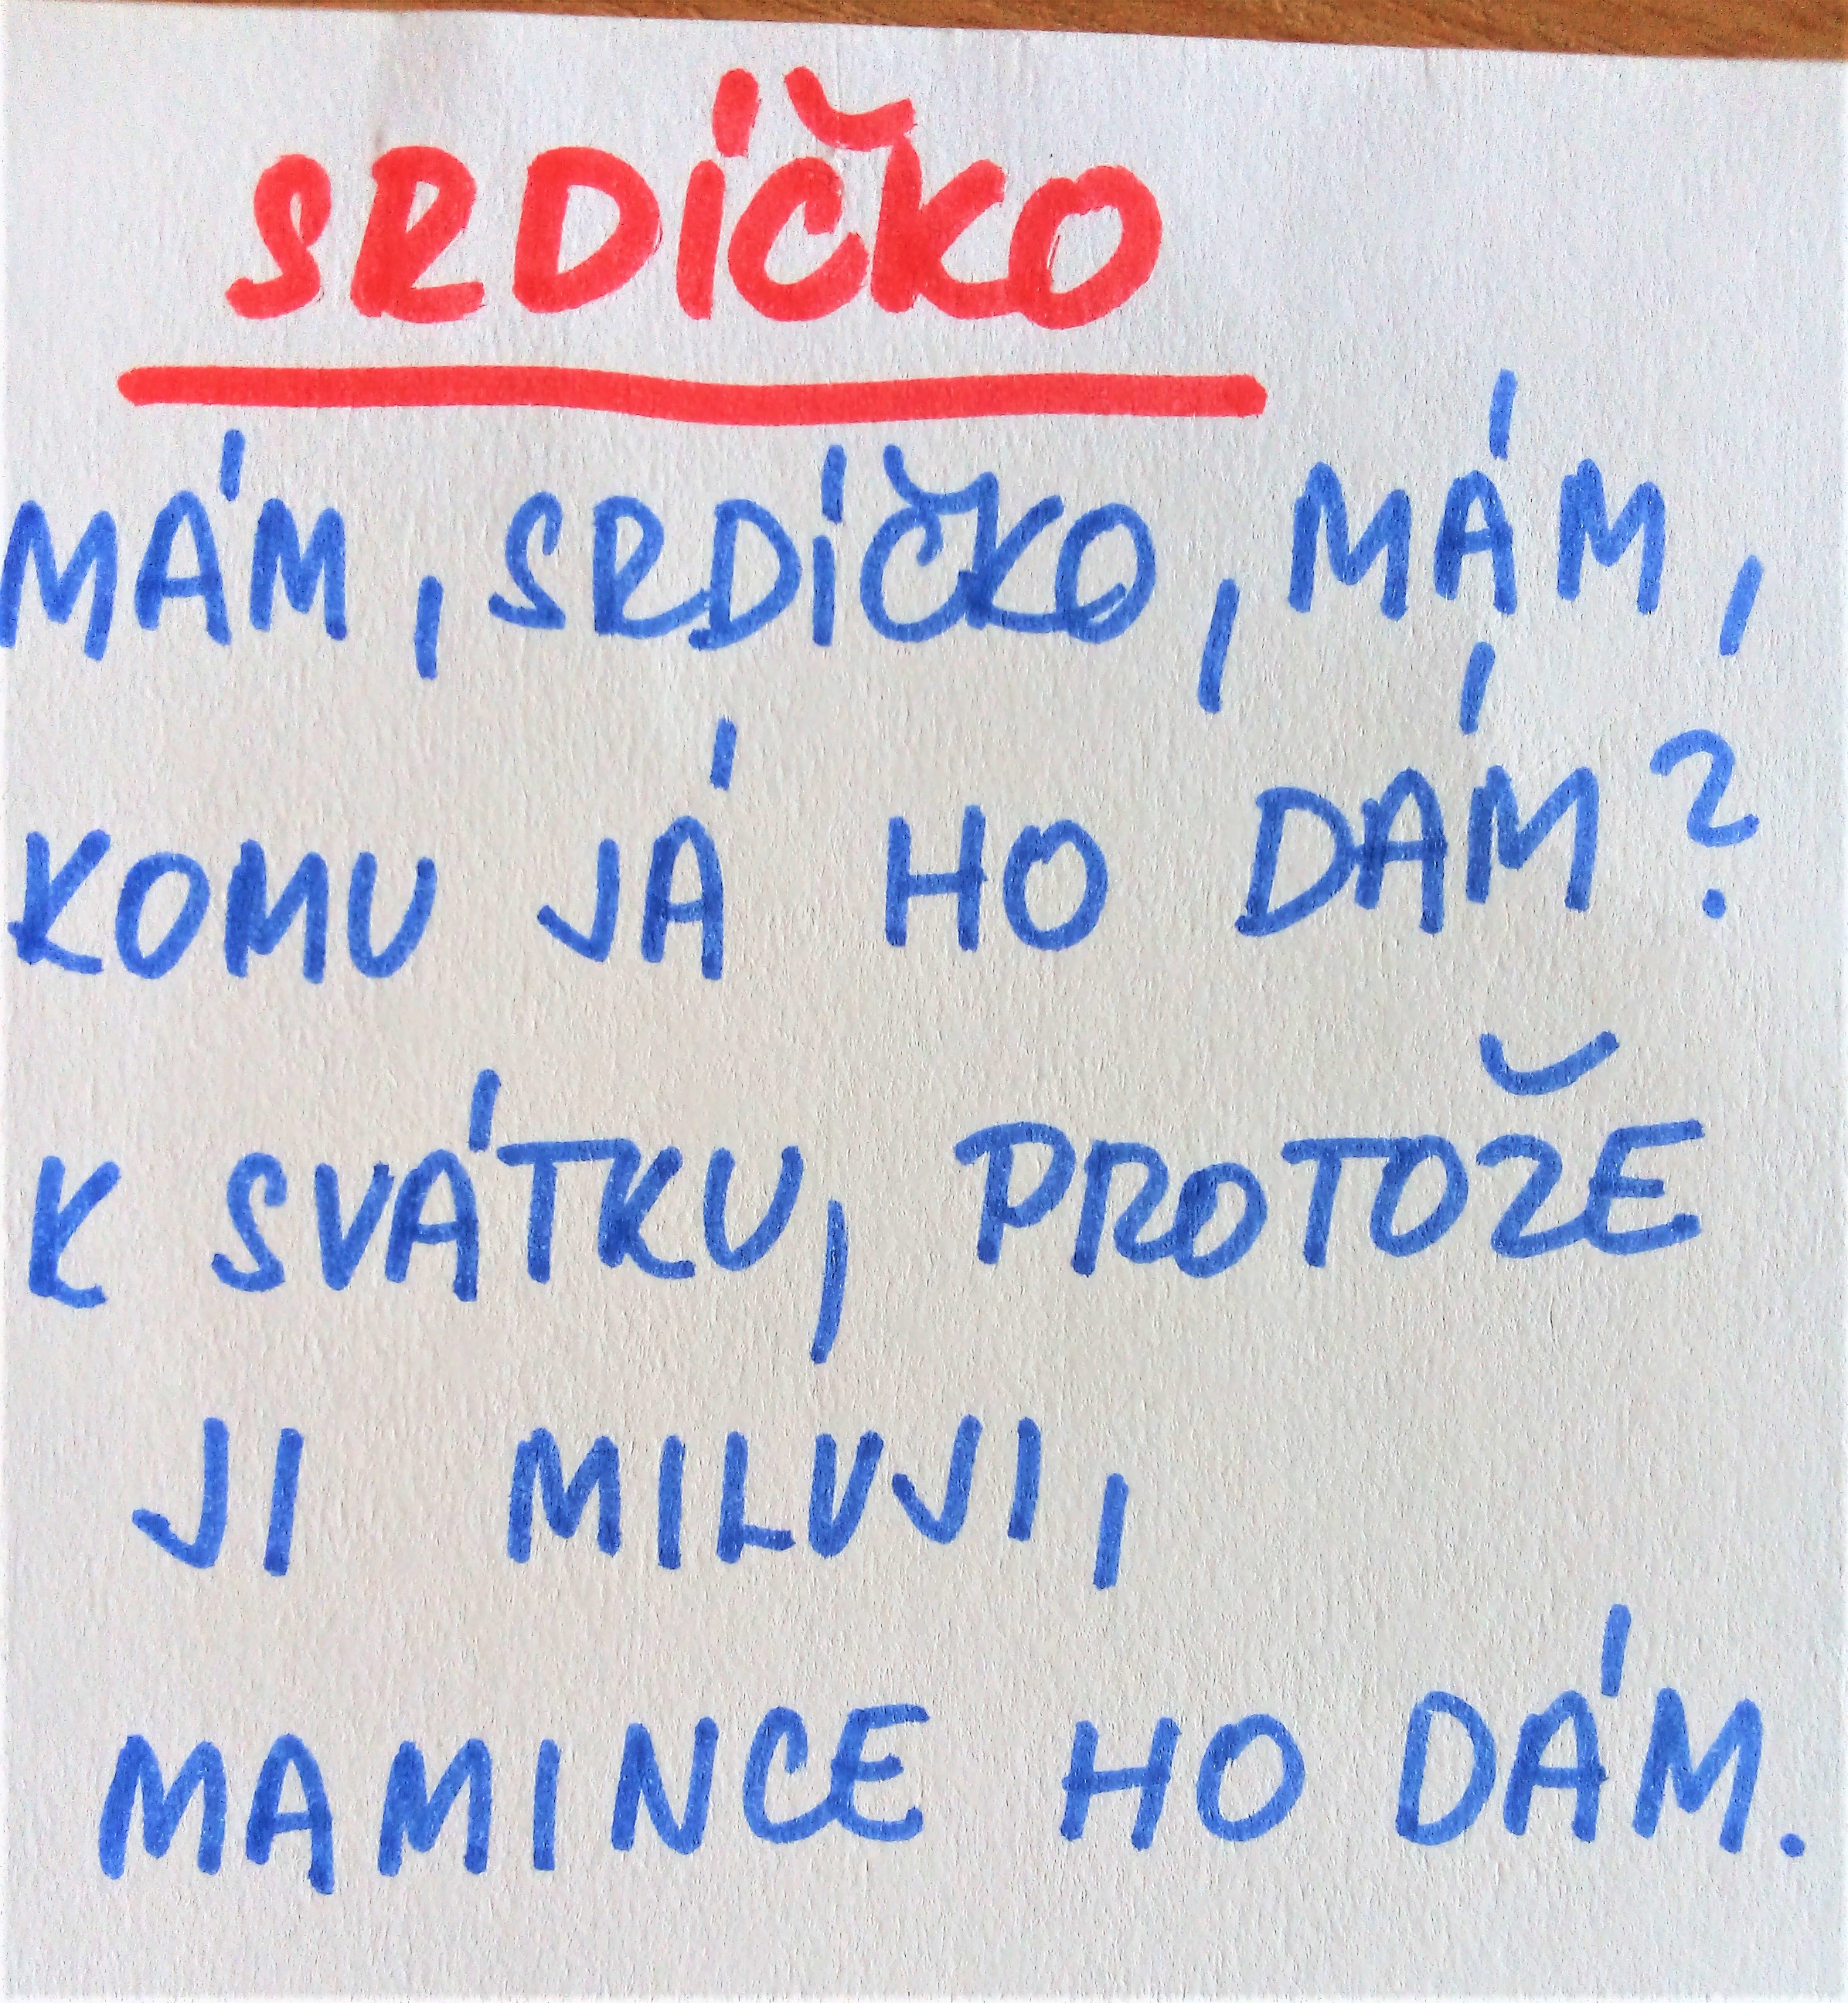 SRDÍČKO
MÁM, SRDÍČKO, MÁM,
KOMU JÁ HO DÁM?
K SVÁTKU, PROTOŽE
JI MILUJI,
MAMINCE HO DÁM.